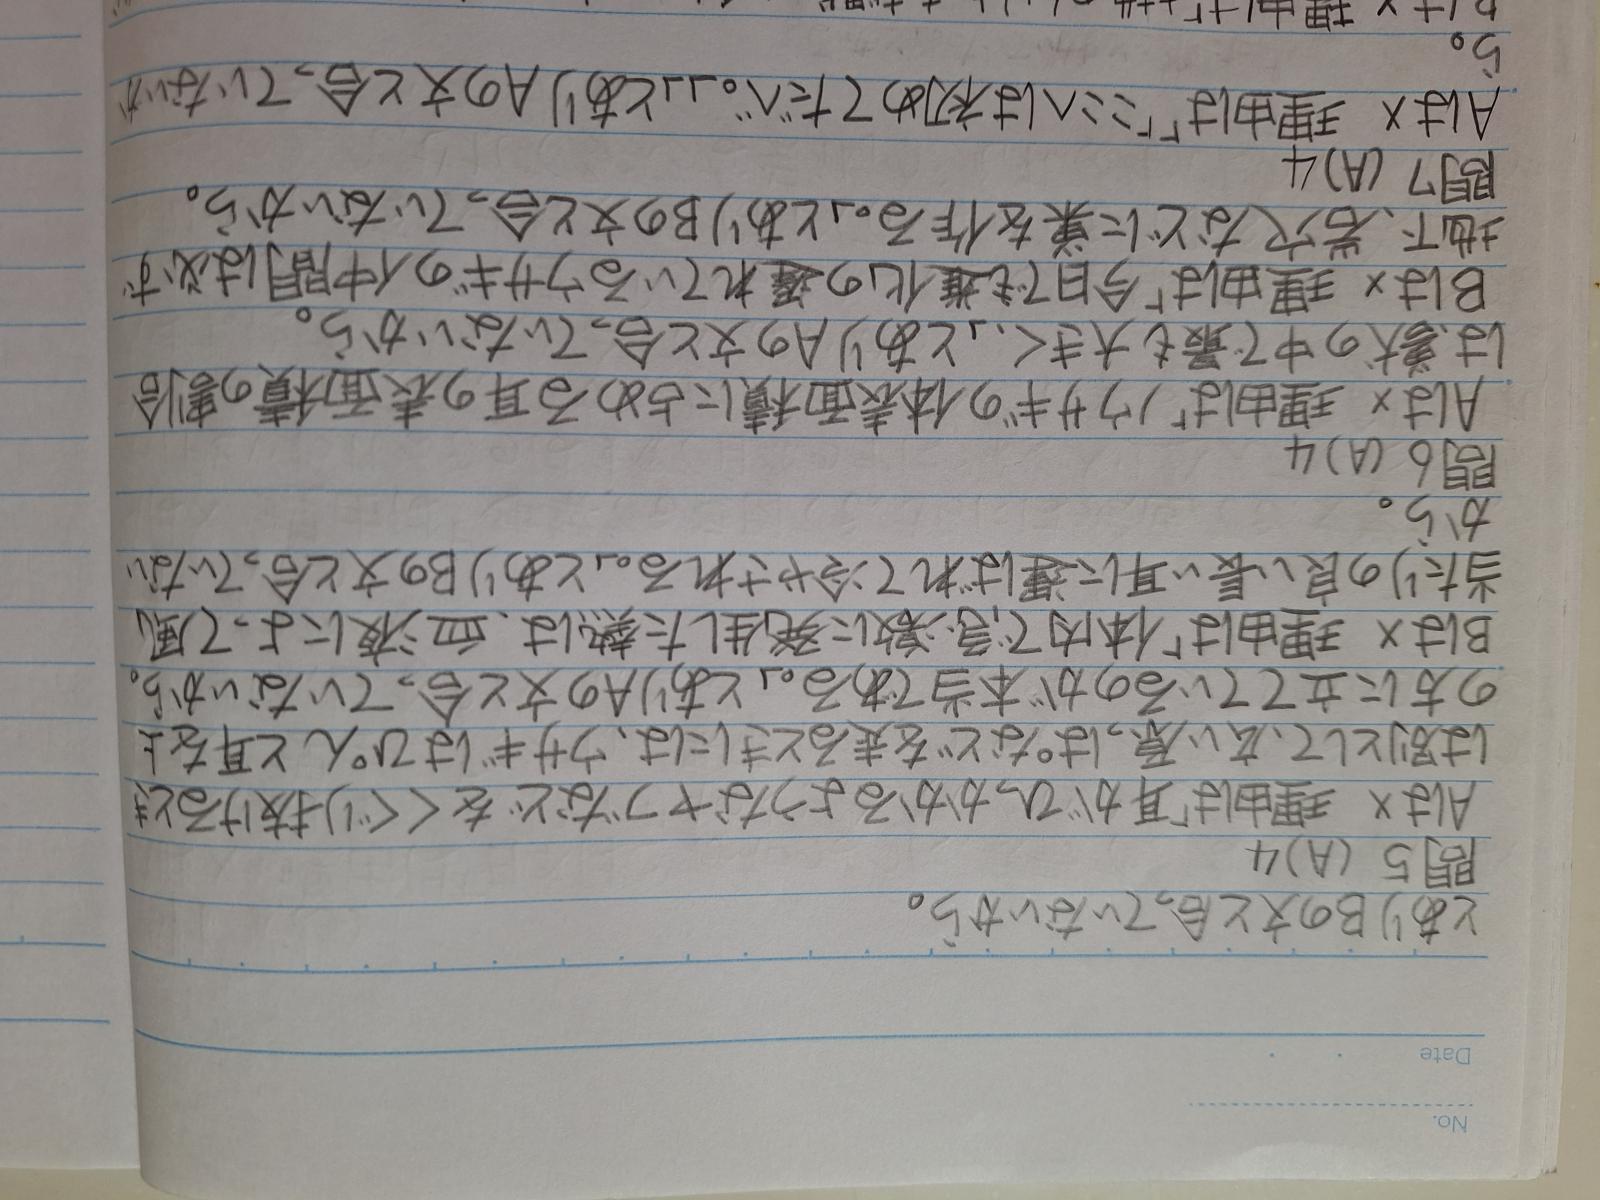 No.
Date
とありBの文と合っていないから。
問5 (A)4
Aは× 理由は「耳がひっかかるようなヤブなどをくぐり抜けるとき
は別として、広い原っぱなどを走るときには、ウサギはぴんと耳を上
の方に立てているのが本当である。」とありAの文と合っていないから。
Bは× 理由は「体内で急激に発生した熱は、血液によって風
当たりの良い長い耳に運ばれて冷やされる。」とありBの文と合っていない
から。
問6 (A)4
Aは× 理由は「ノウサギの体表面積に占める耳の表面積の割合
は、獣の中で最も大きく、」とありAの文と合っていないから。
Bは× 理由は「今日でも進化の遅れているウサギの仲間は必ず
地下、岩穴などに巣を作る。」とありBの文と合っていないから。
問7 (A)4
Aは× 理由は「「ここへは初めてだべ。」」とありAの文と合っていないか
ら。
Bは× 理由は「